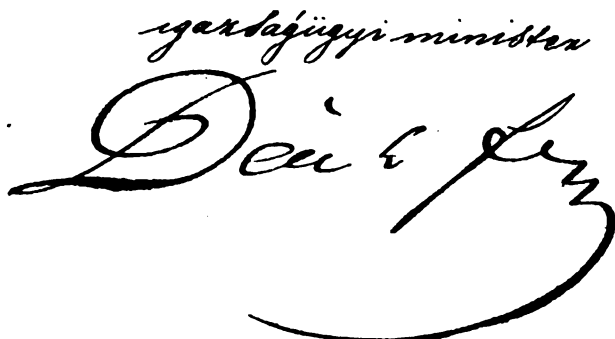 igazságügyi minister
Deák Fer